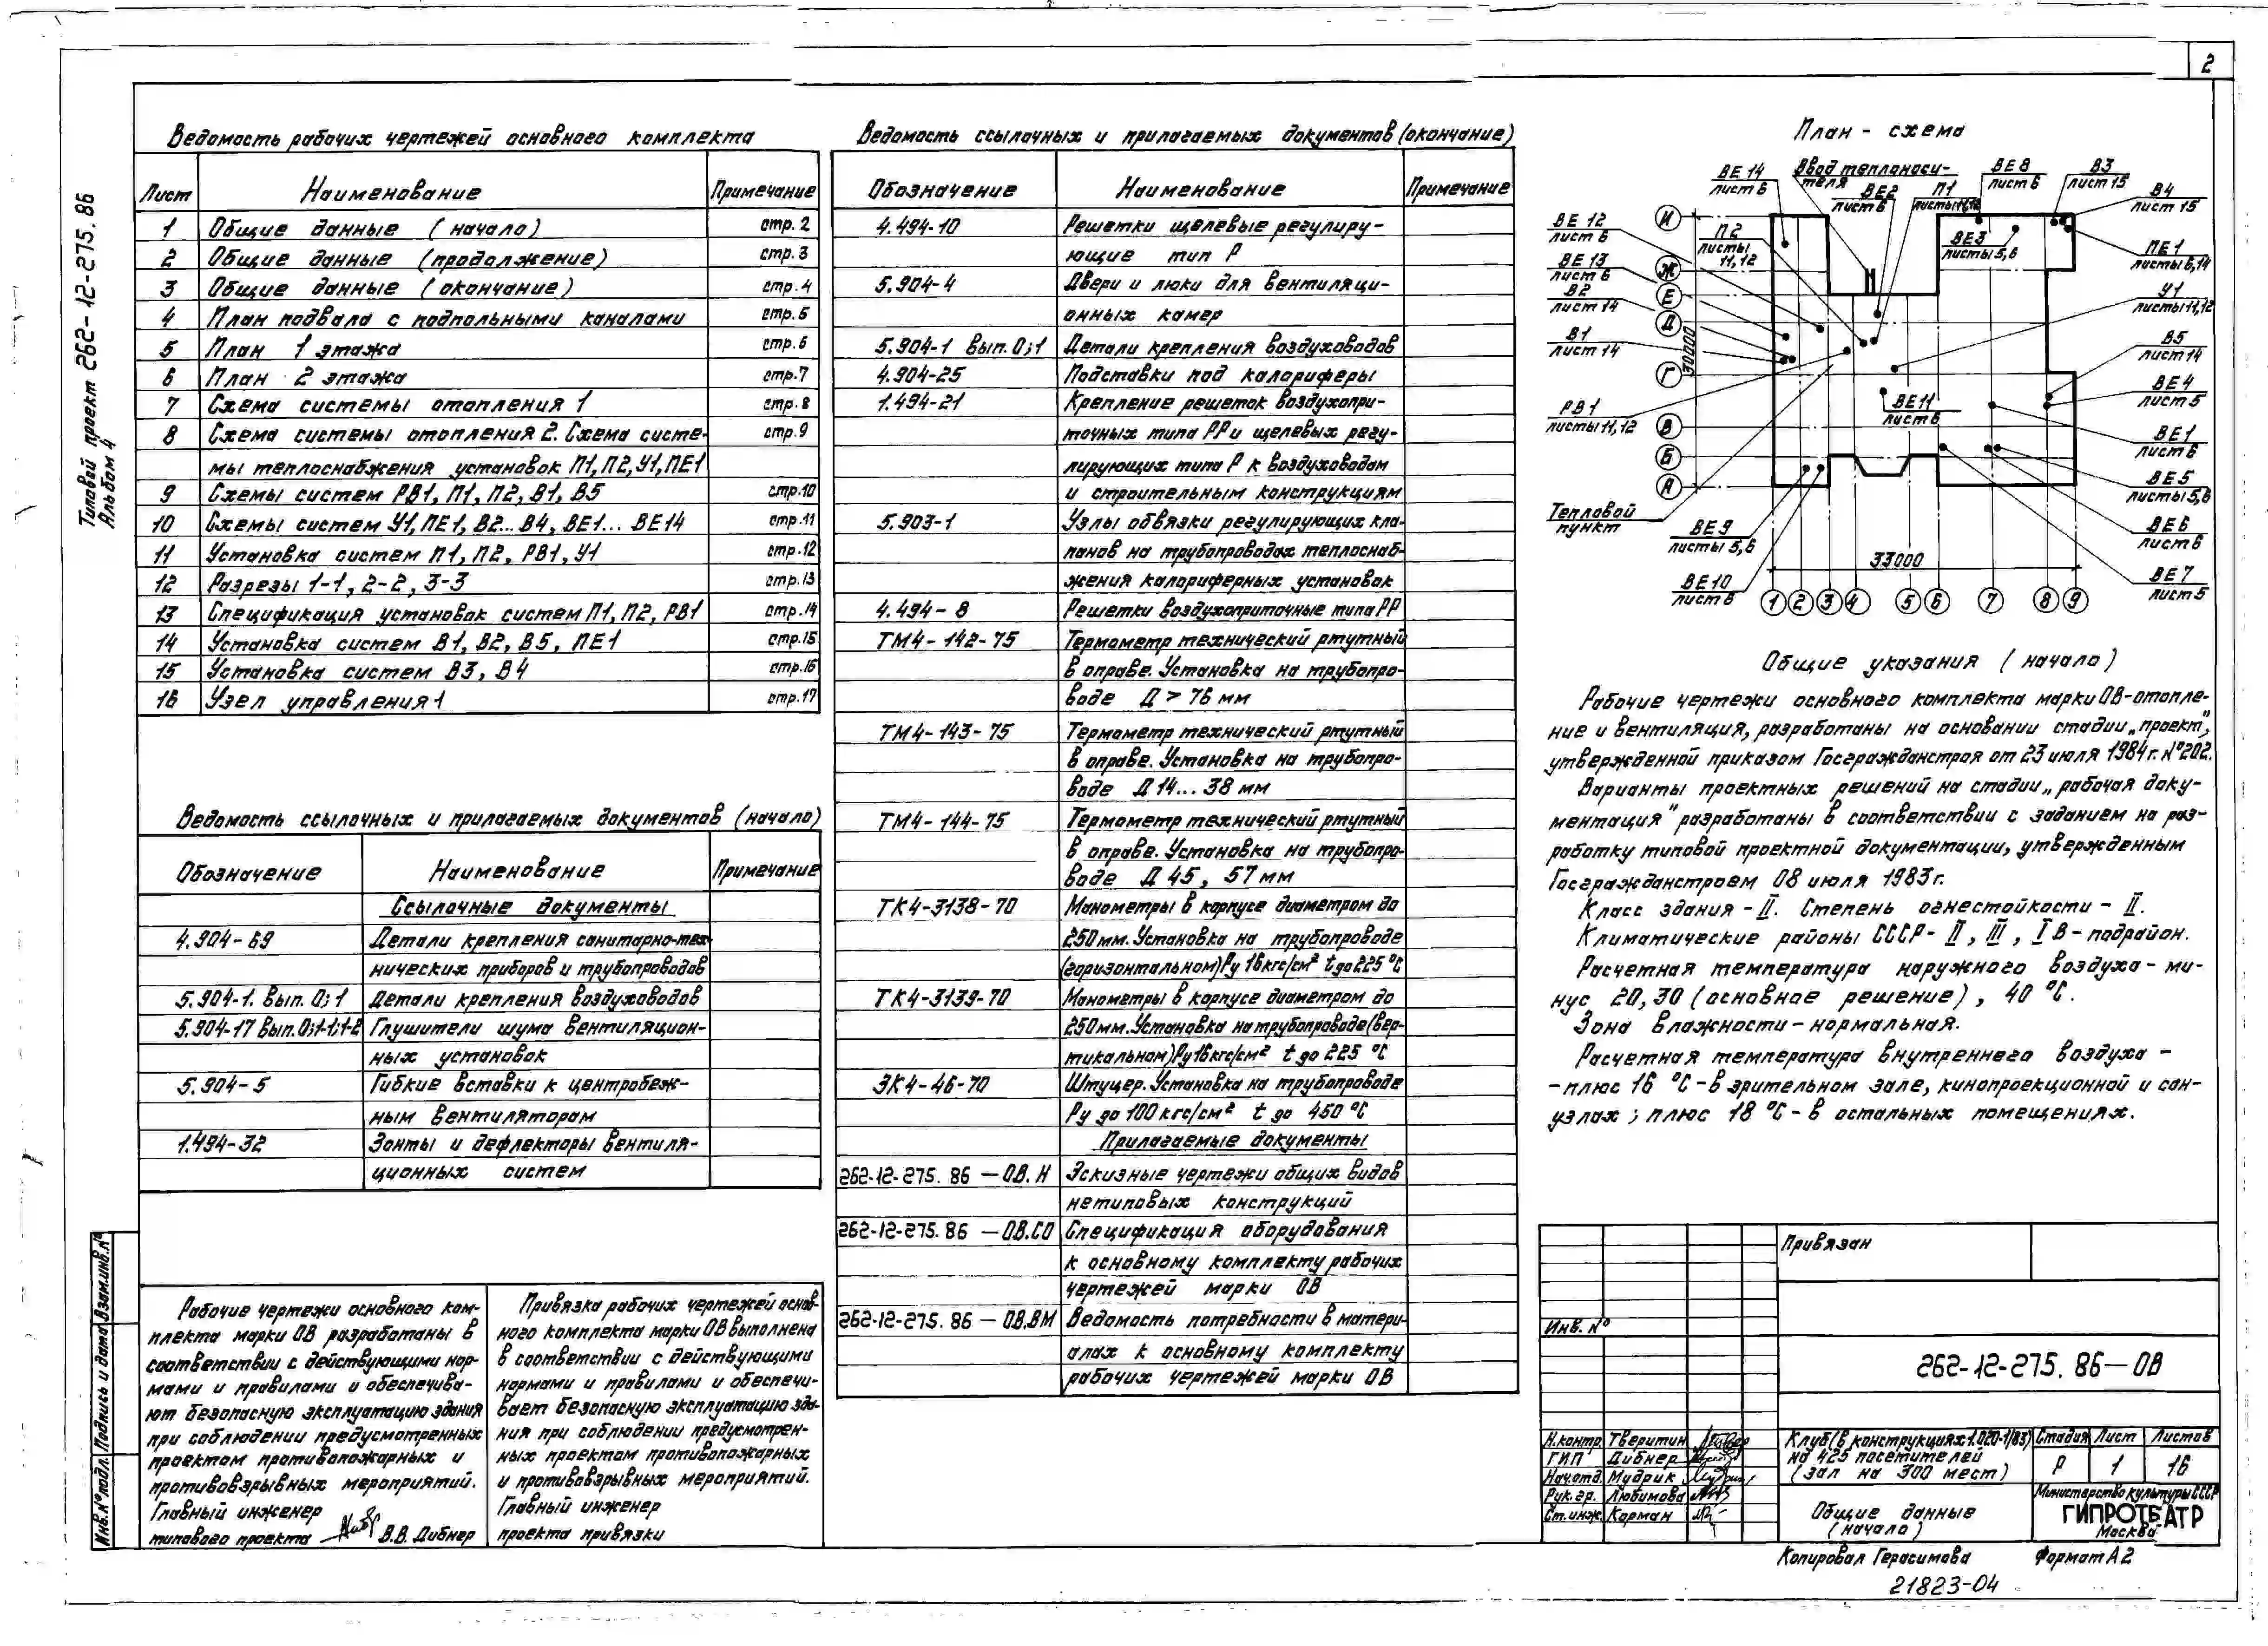 2
Типовой проект 262-12-275.86
Альбом 4
Ведомость рабочих чертежей основного комплекта
Лист Наименование Примечание
1 Общие данные (начало) стр. 2
2 Общие данные (продолжение) стр. 3
3 Общие данные (окончание) стр. 4
4 План подвала с подпольными каналами стр. 5
5 План 1 этажа стр. 6
6 План 2 этажа стр. 7
7 Схема системы отопления 1 стр. 8
8 Схема системы отопления 2. Схема систе- стр. 9
мы теплоснабжения установок П1, П2, У1, ПЕ1
9 Схемы систем РВ1, П1, П2, В1, В5 стр. 10
10 Схемы систем У1, ПЕ1, В2... В4, ВЕ1... ВЕ14 стр. 11
11 Установка систем П1, П2, РВ1, У1 стр. 12
12 Разрезы 1-1, 2-2, 3-3 стр. 13
13 Спецификация установок систем П1, П2, РВ1 стр. 14
14 Установка систем В1, В2, В5, ПЕ1 стр. 15
15 Установка систем В3, В4 стр. 16
16 Узел управления 1 стр. 17
Ведомость ссылочных и прилагаемых документов (начало)
Обозначение Наименование Примечание
Ссылочные документы
4.904-69 Детали крепления санитарно-тех-
нических приборов и трубопроводов
5.904-1. вып. 0;1 Детали крепления воздуховодов
5.904-17 вып. 0;1-1;1-2 Глушители шума вентиляцион-
ных установок
5.904-5 Гибкие вставки к центробеж-
ным вентиляторам
1.494-32 Зонты и дефлекторы вентиля-
ционных систем
Рабочие чертежи основного ком-
плекта марки ОВ разработаны в
соответствии с действующими нор-
мами и правилами и обеспечива-
ют безопасную эксплуатацию здания
при соблюдении предусмотренных
проектом противопожарных и
противовзрывных мероприятий.
Главный инженер
типового проекта В.В. Дибнер
Привязка рабочих чертежей основ-
ного комплекта марки ОВ выполнена
в соответствии с действующими
нормами и правилами и обеспечи-
вает безопасную эксплуатацию зда-
ния при соблюдении предусмотрен-
ных проектом противопожарных
и противовзрывных мероприятий.
Главный инженер
проекта привязки
Инв. № подл. Подпись и дата Взам.инв.№
Ведомость ссылочных и прилагаемых документов (окончание)
Обозначение Наименование Примечание
4.494-10 Решетки щелевые регулиру-
ющие тип Р
5.904-4 Двери и люки для вентиляци-
онных камер
5.904-1 вып. 0;1 Детали крепления воздуховодов
4.904-25 Подставки под калориферы
1.494-21 Крепление решеток воздухопри-
точных типа РР и щелевых регу-
лирующих типа Р к воздуховодам
и строительным конструкциям
5.903-1 Узлы обвязки регулирующих кла-
панов на трубопроводах теплоснаб-
жения калориферных установок
4.494-8 Решетки воздухоприточные типа РР
ТМ4-142-75 Термометр технический ртутный
в оправе. Установка на трубопро-
воде Д > 76 мм
ТМ4-143-75 Термометр технический ртутный
в оправе. Установка на трубопро-
воде Д 14... 38 мм
ТМ4-144-75 Термометр технический ртутный
в оправе. Установка на трубопро-
воде Д 45, 57 мм
ТК4-3138-70 Манометры в корпусе диаметром до
250 мм. Установка на трубопроводе
(горизонтальном) Ру 16 кгс/см² t до 225 °С
ТК4-3139-70 Манометры в корпусе диаметром до
250 мм. Установка на трубопроводе (вер-
тикальном) Ру 16 кгс/см² t до 225 °С
ЗК4-46-70 Штуцер. Установка на трубопроводе
Ру до 100 кгс/см² t до 450 °С
Прилагаемые документы
262-12-275.86 — ОВ.Н Эскизные чертежи общих видов
нетиповых конструкций
262-12-275.86 — ОВ.СО Спецификация оборудования
к основному комплекту рабочих
чертежей марки ОВ
262-12-275.86 — ОВ.ВМ Ведомость потребности в матери-
алах к основному комплекту
рабочих чертежей марки ОВ
План - схема
ВЕ 14
лист 6
Ввод теплоноси-
теля
ВЕ2
лист 6
П1
листы 11,12
ВЕ 8
лист 6
В3
лист 15
В4
лист 15
ВЕ 12
лист 6
П2
листы
11,12
ВЕ3
листы 5,6
ПЕ 1
листы 6,14
ВЕ 13
лист 6
В2
лист 14
У1
листы 11,12
В1
лист 14
В5
лист 14
ВЕ 4
лист 5
РВ 1
листы 11,12
ВЕ 11
лист 6
ВЕ 1
лист 6
ВЕ 5
листы 5,6
Тепловой
пункт
ВЕ 9
листы 5,6
ВЕ 6
лист 6
ВЕ 10
лист 6
ВЕ 7
лист 5
И
Ж
Е
Д
Г
В
Б
А
30000
33000
1 2 3 4 5 6 7 8 9
Общие указания (начало)
Рабочие чертежи основного комплекта марки ОВ-отопле-
ние и вентиляция, разработаны на основании стадии „проект",
утвержденной приказом Госгражданстроя от 23 июля 1984 г. №202.
Варианты проектных решений на стадии „рабочая доку-
ментация" разработаны в соответствии с заданием на раз-
работку типовой проектной документации, утвержденным
Госгражданстроем 08 июля 1983 г.
Класс здания - II. Степень огнестойкости - II.
Климатические районы СССР - II, III, I В - подрайон.
Расчетная температура наружного воздуха - ми-
нус 20, 30 (основное решение), 40 °С.
Зона влажности - нормальная.
Расчетная температура внутреннего воздуха -
- плюс 16 °С - в зрительном зале, кинопроекционной и сан-
узлах; плюс 18 °С - в остальных помещениях.
Привязан
Инв. №
262-12-275.86—ОВ
Н.контр. Тверитин
ГИП Дибнер
Нач.отд. Мудрик
Рук.гр. Любимова
Ст.инж. Корман
Клуб (в конструкциях 1.020-1/83)
на 425 посетителей
(зал на 300 мест)
Стадия Лист Листов
Р 1 16
Общие данные
(начало)
Министерство культуры СССР
ГИПРОТЕАТР
Москва
Копировал Герасимова Формат А2
21823-04